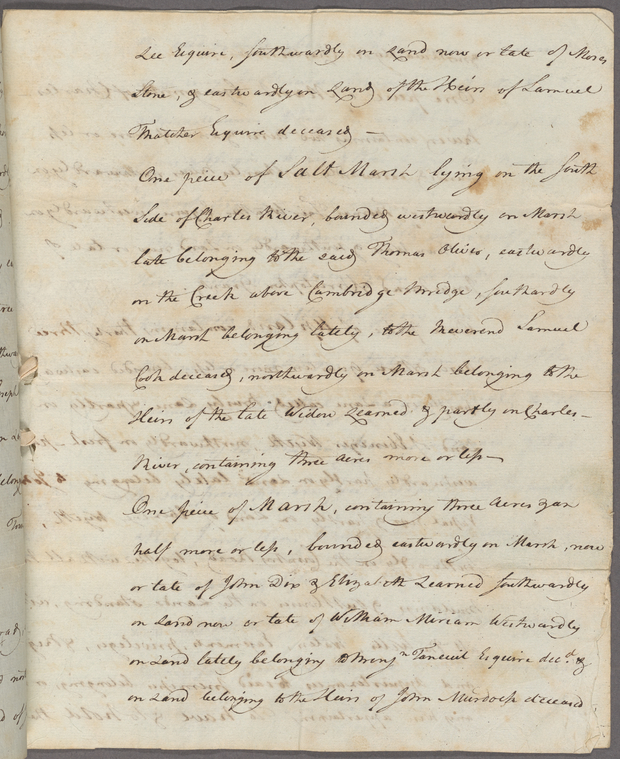 Lee Esquire, southwardly on Land now or late of Moses
Stone, & eastwardly on Land of the Heirs of Samuel
Thatcher Esquire deceased —
One piece of Salt Marsh lying on the South
Side of Charles River, bounded westwardly on Marsh
late belonging to the said Thomas Oliver, eastwardly
on the Creek above Cambridge Bridge, southardly
on Marsh belonging lately, to the Reverend Samuel
Cook deceased, northwardly on Marsh belonging to the
Heirs of the late Widow Learned & partly on Charles-
River, containing three Acres more or less —
One piece of Marsh, containing three Acres & an
half more or less, bounded eastwardly on Marsh, now
or late of John Dix & Elizabeth Learned southwardly
on Land now or late of William Meriam Westwardly
on Land lately belonging to Benjn Faneuil Esquire decd. &
on Land belonging to the Heirs of John Murdock deceased